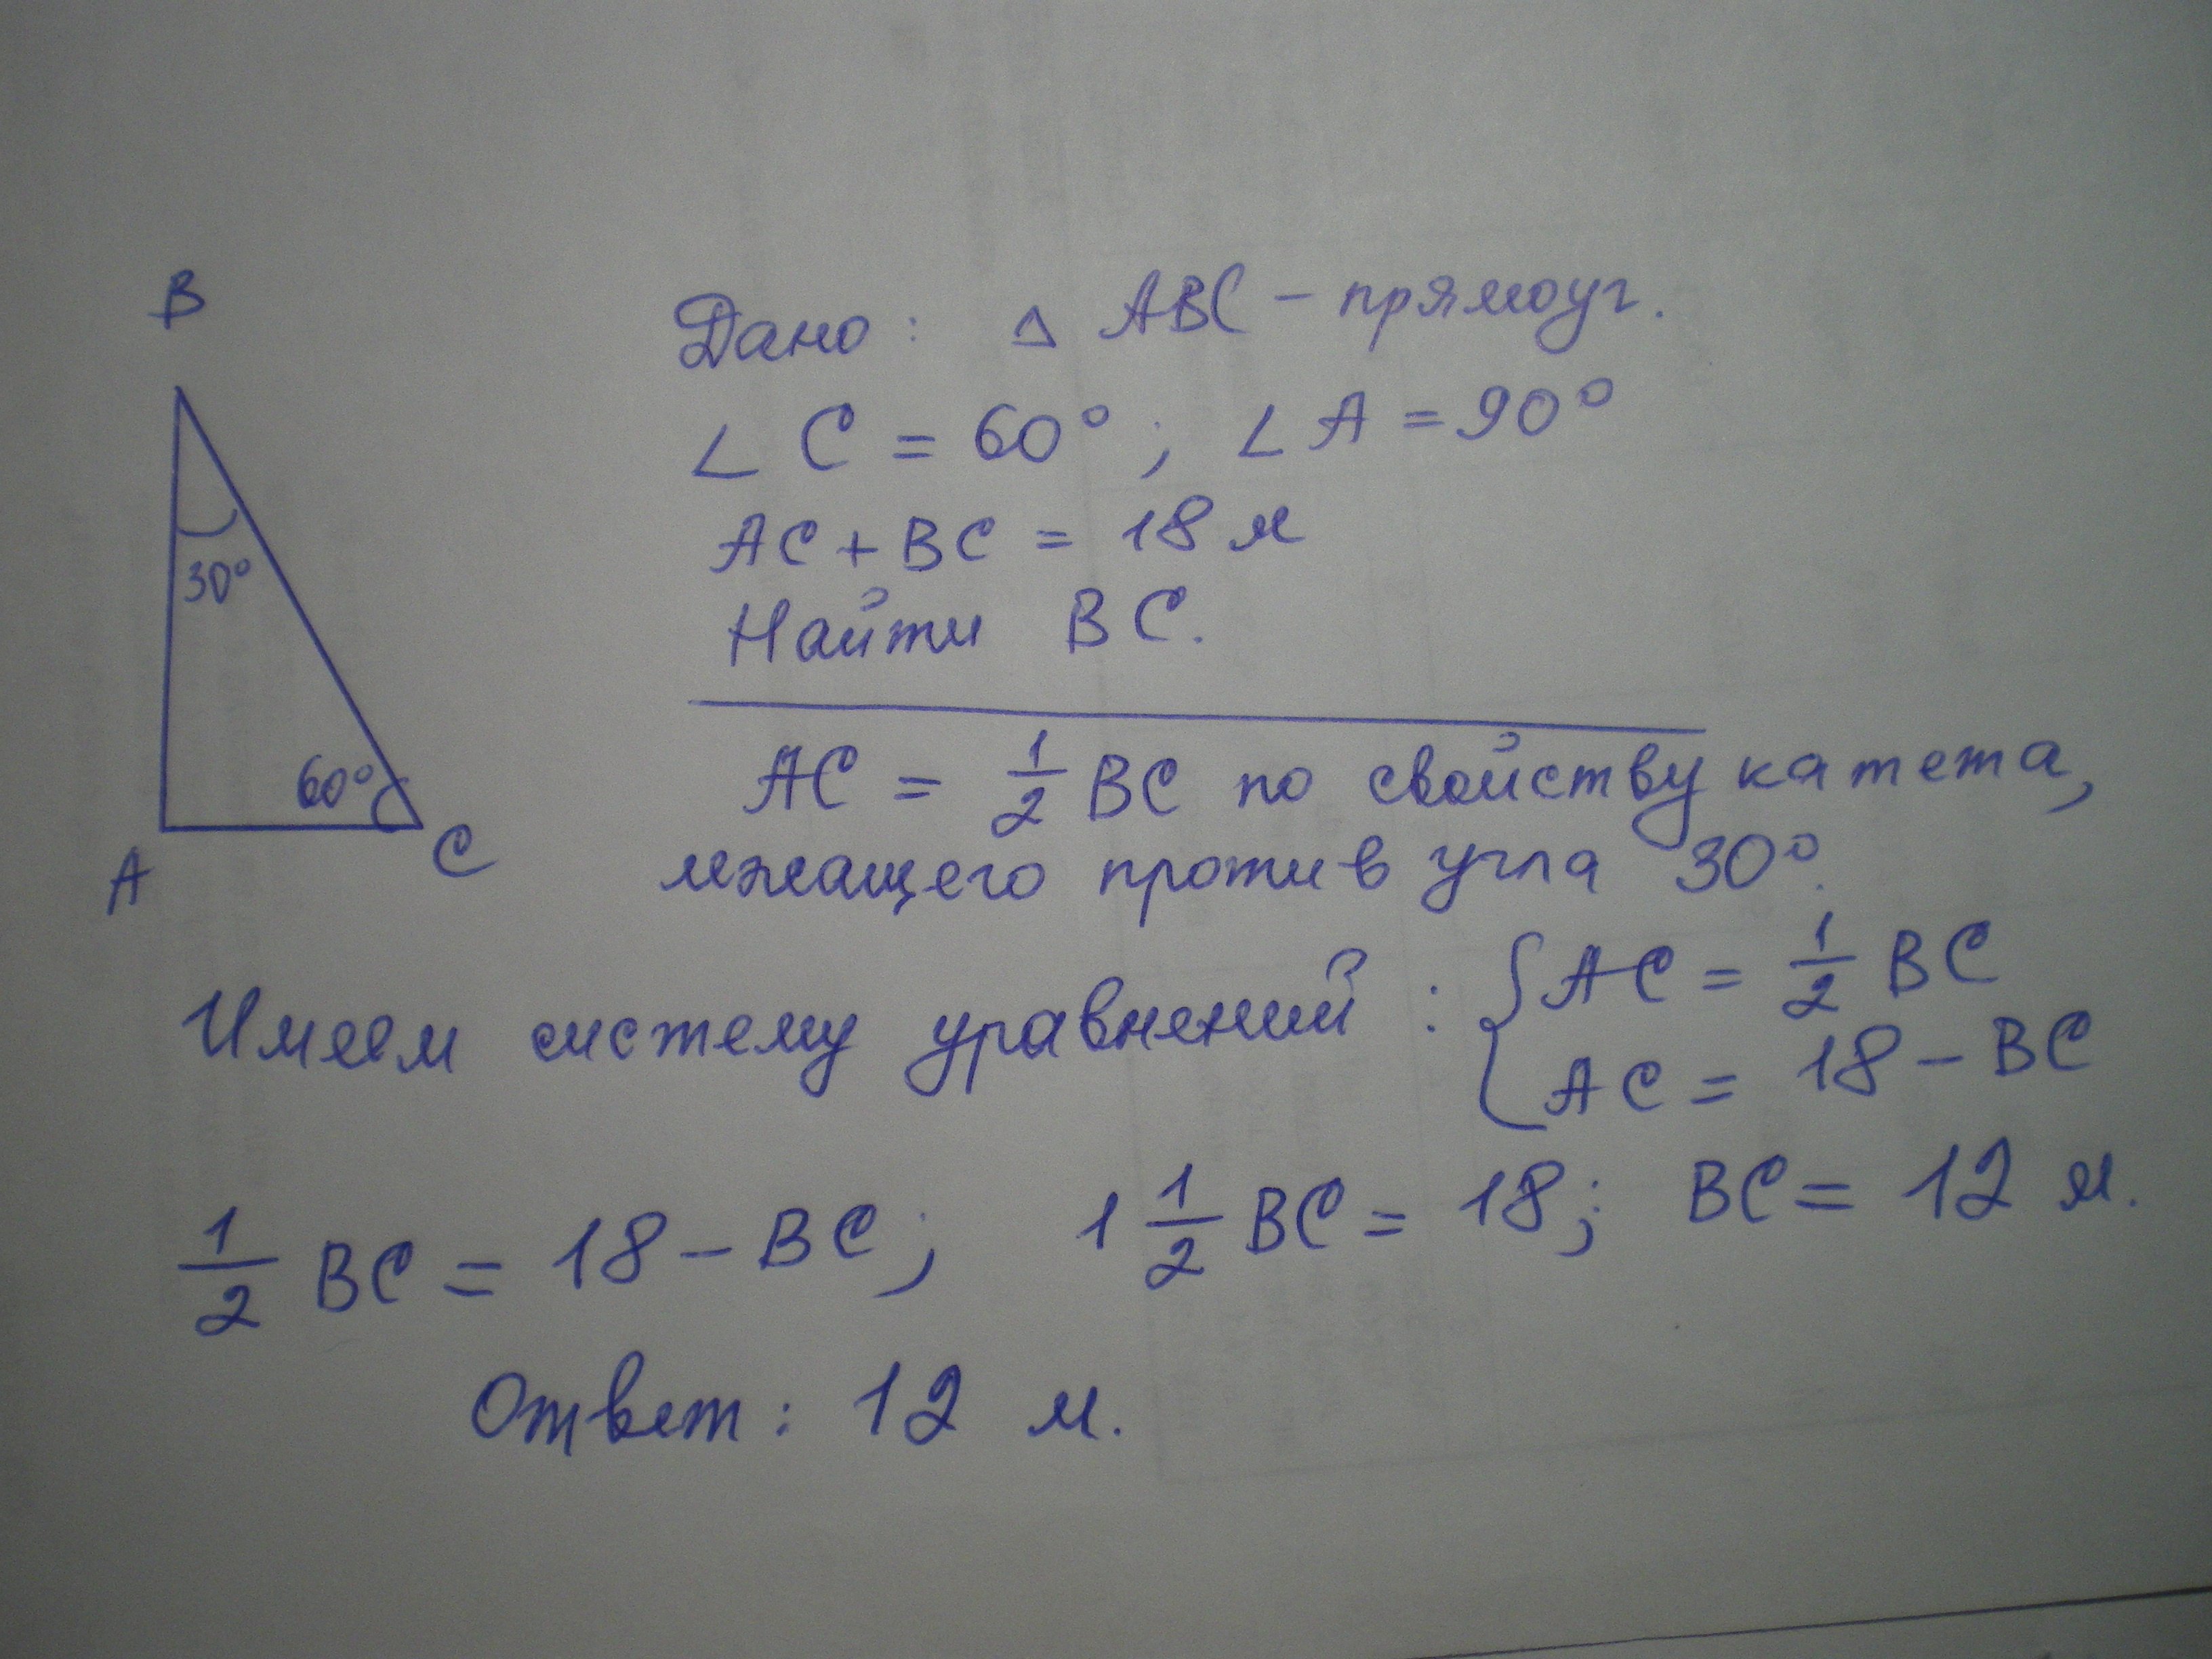 B
30°
60°
A
C
Дано: △ ABC – прямоуг.
∠ C = 60°; ∠ A = 90°
AC + BC = 18 м
Найти BC.
AC = 1/2 BC по свойству катета,
лежащего против угла 30°.
Имеем систему уравнений: { AC = 1/2 BC
AC = 18 – BC
1/2 BC = 18 – BC; 1 1/2 BC = 18; BC = 12 м.
Ответ: 12 м.